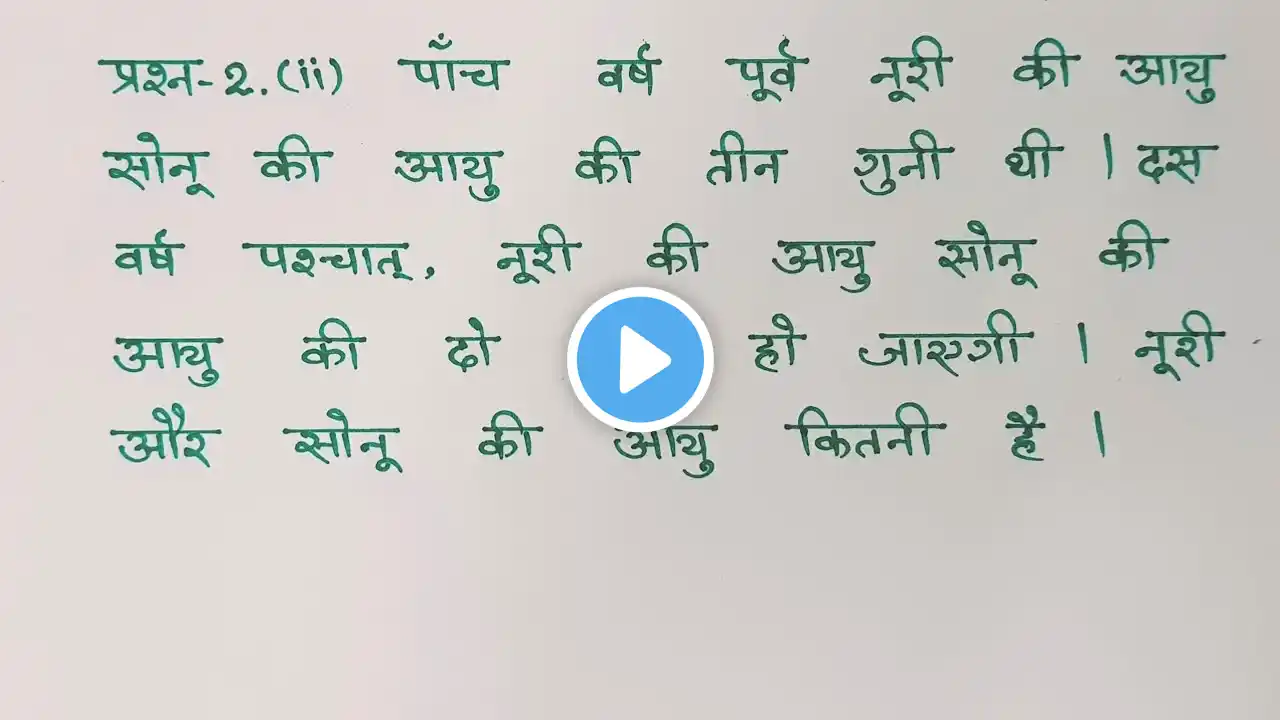 प्रश्न-2.(ii) पाँच वर्ष पूर्व नूरी की आयु
सोनू की आयु की तीन गुनी थी । दस
वर्ष पश्चात्, नूरी की आयु सोनू की
आयु की दो हो जाएगी । नूरी
और सोनू की आयु कितनी है ।